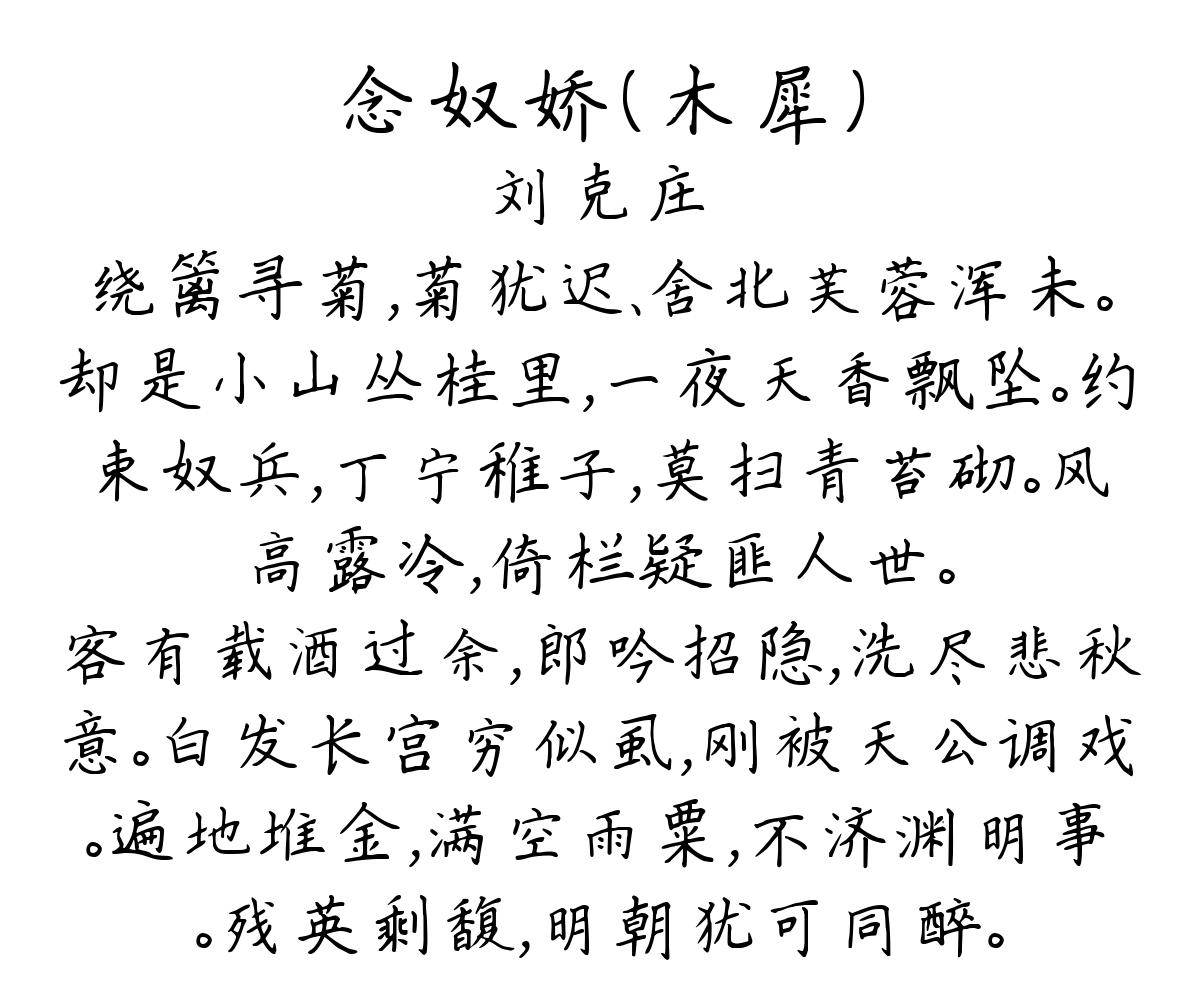 念奴娇(木犀)
刘克庄
绕篱寻菊,菊犹迟、舍北芙蓉浑未。
却是小山丛桂里,一夜天香飘坠。约
束奴兵,丁宁稚子,莫扫青苔砌。风
高露冷,倚栏疑匪人世。
客有载酒过余,郎吟招隐,洗尽悲秋
意。白发长官穷似虱,刚被天公调戏
。遍地堆金,满空雨粟,不济渊明事
。残英剩馥,明朝犹可同醉。